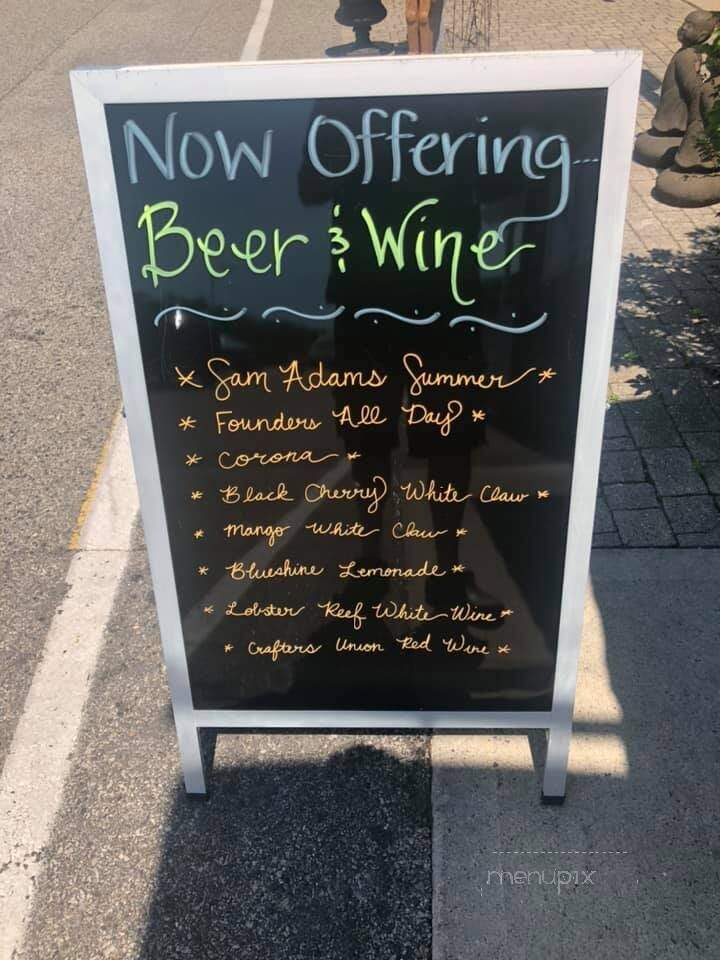 Now Offering...
Beer & Wine
* Sam Adams Summer *
* Founders All Day *
* Corona *
* Black Cherry White Claw *
* Mango White Claw *
* Blueshine Lemonade *
* Lobster Reef White Wine *
* Crafters Union Red Wine *
menupix